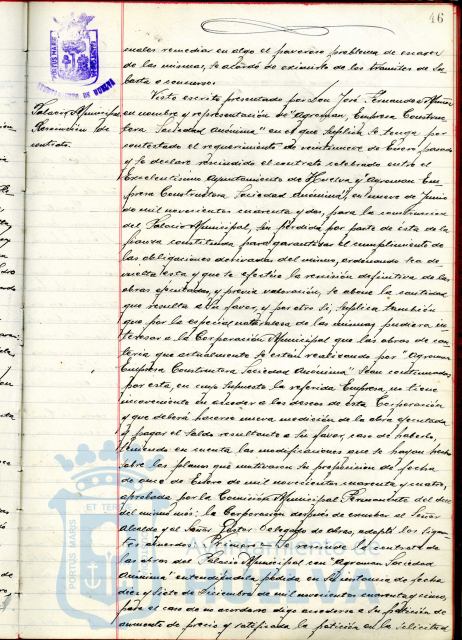 46
PORTUS MARIS
AYUNTAMIENTO DE HUELVA
males remediar en algo el pavoroso problema de escasez
de las mismas, se acordó de eximirlo de los trámites de Su-
basta o concurso.
Palacio Municipal
Rescisión de
contrato.
Visto escrito presentado por Don José Fernández Muñoz
en nombre y representación de "Agroman, Empresa Construc-
tora Sociedad Anónima" en el que suplica se tenga por
contestado el requerimiento de veintinueve de Enero pasado
y se declare rescindido el contrato celebrado entre el
Excelentísimo Ayuntamiento de Huelva y Agroman Em-
presa Constructora Sociedad Anónima, en nueve de Junio
de mil novecientos cuarenta y dos, para la construcción
del Palacio Municipal, sin pérdida por parte de ésta de la
fianza constituida para garantizar el cumplimiento de
las obligaciones derivadas del mismo, ordenando sea de-
vuelta ésta y que se efectúe la recisión definitiva de las
obras ejecutadas, y previa valoración, se abone la cantidad
que resulte a su favor, y por otro sí, suplica también
que por la especial naturaleza de las mismas pudiera in-
teresar a la Corporación Municipal que las obras de can-
tería que actualmente se están realizando por "Agroman
Empresa Constructora Sociedad Anónima" sean continuadas
por ésta, en cuyo supuesto la referida Empresa, no tiene
inconveniente en acceder a los deseos de esta Corporación
y que deberá hacerse nueva medición de la obra ejecutada
y pagar el saldo resultante a su favor, caso de haberlo,
teniendo en cuenta las modificaciones que se hayan hecho
sobre los planos que motivaron su proposición de fecha
de once de Enero de mil novecientos cuarenta y cuatro,
aprobada por la Comisión Municipal Permanente del doce
del mismo mes; la Corporación después de escuchar el Señor
Alcalde y al Señor Gestor Delegado de obras, adoptó los siguien-
tes acuerdos: Primero: el contrato de
las obras del Palacio Municipal con "Agroman Sociedad
Anónima" entendiéndola pedida en su instancia de fecha
diez y siete de Diciembre de mil novecientos cuarenta y cinco,
para el caso de no acordarse digo accederse a su petición de
aumento de precio y ratificada la petición en la solicitud
Ayuntamiento de
HUELVA